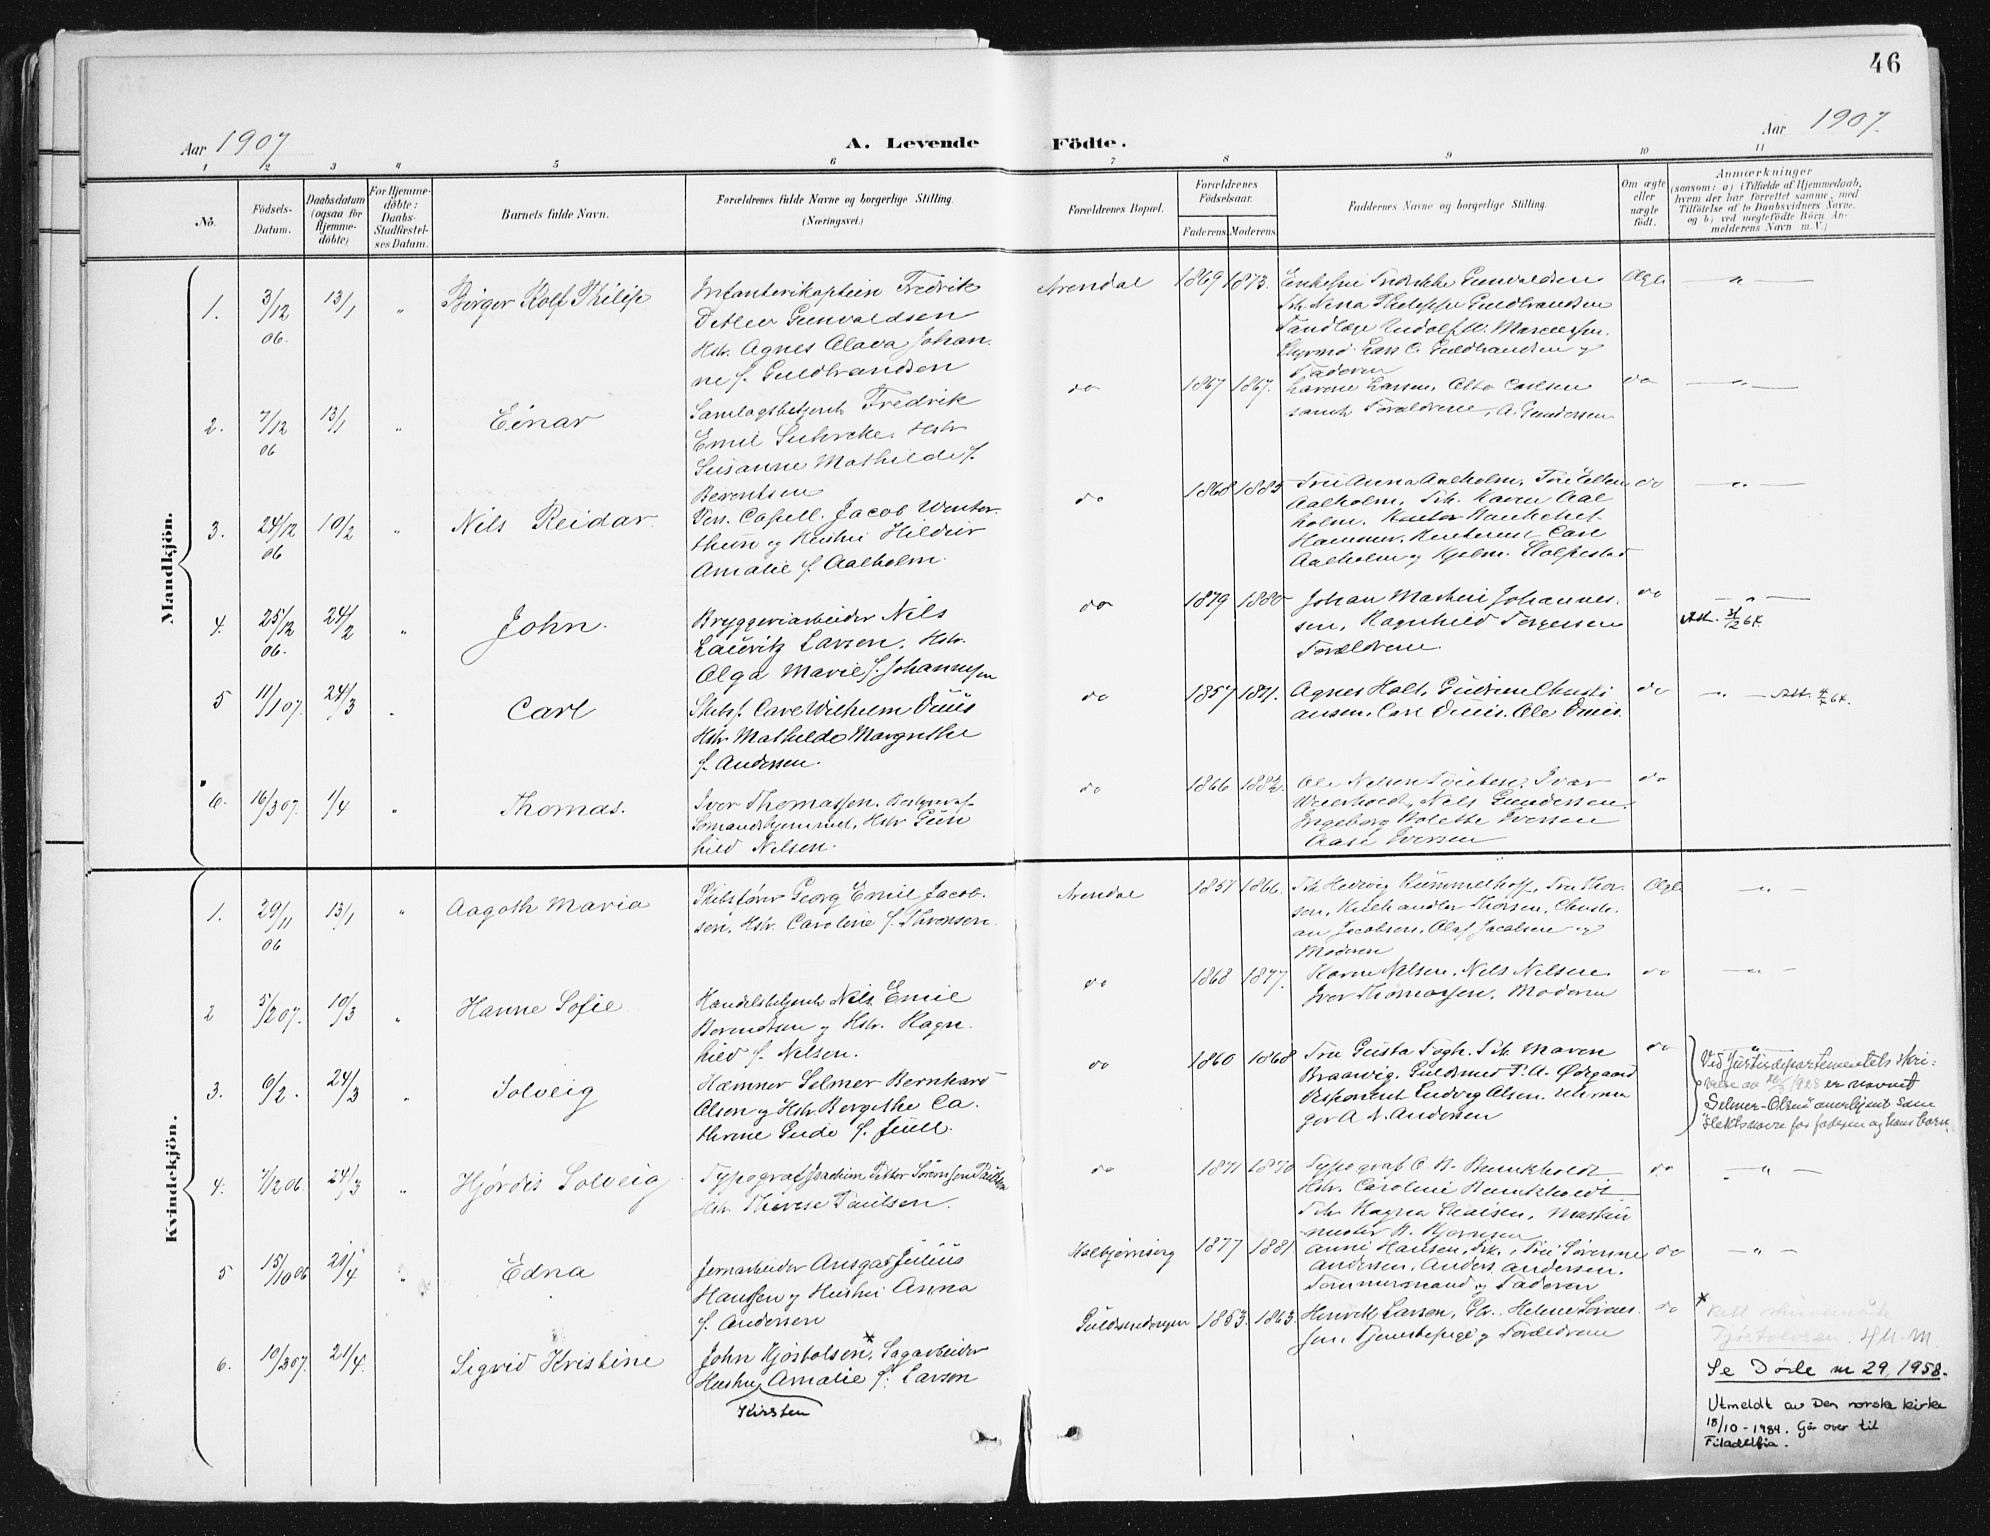 46
Aar 1907
A. Levende Födte.
Aar 1907.
1 2 3 4 5 6 7 8 9 10 11
No.
Födsels-
Datum.
Daabsdatum
(ogsaa for
Hjemme-
döbte)
For Hjemme-
döbte:
Daabs-
Stadfæstel-
ses Datum.
Barnets fulde Navn.
Forældrenes fulde Navne og borgerlige Stilling.
(Næringsvei.)
Forældrenes Bopæl.
Forældrenes
Födselsaar.
Faderens. Moderens.
Faddernes Navne og borgerlige Stilling.
Om ægte
eller
uægte
födt.
Anmærkninger
(saasom: a) i Tilfælde af Hjemmedaab,
hvem der har forrettet samme, med
Tilföielse af to Daabsvidners Navne,
og b) ved uegtefödte Börn An-
melderens Navn m. V.)
Mandkjön.
1. 3/12 06. 13/1 " Birger Rolf Philip
Infanterikaptein Fredrik
Detlev Gunvaldsen
Hstr. Agnes Olava Johan-
ne f. Guldbrandsen
Arendal 1869 1873.
Enkefru Fredrikke Gunvaldsen
Frk. Nina Philippa Guldbrandsen
Tandlæge Rudolf W. Marcussen.
Styrmd. Lars C. Guldbrandsen og
Faderen
Ægte — " —
2. 7/12 06 13/1 " Einar
Samlagsbetjent Fredrik
Emil Suhrcke, Hstr
Susanne Mathilde f.
Berentsen
do 1867 1867.
Lavine Larsen, Otto Carlsen
samt Forældrene, A. Gundersen
do — " —
3. 24/12 06 10/2 " Nils Reidar.
Pers. Capell. Jacob Wenter-
thun og Hustru Hildur
Amalie f. Aalholm.
do 1868 1885
Fru Anna Aalholm, Fru Ellen
Aalholm, Frk. Karen Aal
holm,
Hammer, Carl
Aalholm og Kjøbm. Stolpestad
do — " —
4. 25/12 06. 24/2 " John.
Bryggeriarbeider Nils
Lauritz Larsen, Hstr.
Olga Marie f. Johannessen
do 1879 1880
Johan Martin Johannes-
sen, Ragnhild Torgersen
Forældrene.
do — " —
Att. 3/12 64.
5 11/1 07. 24/3 " Carl
Skibsf. Carl Wilhelm Duus
Hstr Mathilde Margrethe
f. Andersen.
do 1857 1871.
Agnes Holt, Gudrun Christi
ansen, Carl Duus. Ole Duus.
do — " — Att.
6. 16/3 07. 1/4 " Thomas.
Iver Thomassen. Bestyrer af
Sømandshjemmet, Hstr Gun
hild Nilsen.
do 1866 1882.
Ole Nilsen Ivar
Weierholdt, Nils Gundersen,
Ingeborg Bolette Iversen
Aase Iversen
do
Kvindekjön.
1. 29/11 06 13/1 " Aagoth Maria
Skibsfører Georg Emil Jacob-
sen, Hstr. Caroline f. Thronsen.
Arendal 1857 1866.
Frk Hedvig Kummelhoff, Fru Thor-
sen, Kulhandler Thorsen, Christi-
an Jacobsen, Olaf Jacobsen og
Moderen
Ægte — " —
2 5/2 07. 10/3 " Hanne Sofie
Handelsbetjent Nils Emil
Berendsen og Hstr. Ragn
hild f. Nilsen.
do 1868 1877.
Karen Nilsen, Nils Nilsen.
Iver Thomassen, Moderen
do — " —
3. 6/2. 24/3 " Solveig
Hæmner Selmer Bernhard
Olsen og Hstr. Bergithe Ca-
thrine Gude f. Juell.
do 1860 1868
Fru Gusta Fogh, Frk. Maren
Braarvig, Guldsmed P. A. Ødegaard
Disponent Ludvig Olsen. Uhrma
ger A. N. Andersen
do — " —
Ved Justisdepartementets skri-
velse av 1928 er navnet
"Selmer-Olsen" anerkjent som
slektsnavn for faderen og hans barn.
4. 7/12 06. 24/3 " Hjørdis Solveig
Typograf Joachim Petter Sørensen Paulsen
Hstr. Therese Paulsen.
do 1871 1870
Typograf O. B. Bunkholdt
Hstr. Caroline Bunkholdt
Frk Ragna Maskin
mester B. Bjørnsen
do — " —
5 15/10 06 21/4 " Edna
Jernarbeider Ansgar Julius
Hanssen og Hustru Anna
f. Andersen
Kolbjørnsvig 1877 1881
Anni Hansen, Frk., Fru Sørenne
Andersen, Anders Andersen,
Tømmermand og Faderen
do — " —
6. 10/3 07. 21/4. Sigrid Kristine
John Kjøstolsen*, Sagarbeider
Hustru Amalie f. Larsen
Kirsten
Guldsmedengen 1853. 1863.
Henrik Larsen, Gbr. Helene Sørens-
sen, Tjenestepige og Forældrene
do
* Rett skrivemåte
Tjøstolvsen. 4M.M
Se Døde nr 29, 1958.
Utmeldt av Den norske kirke
18/10-1984. Går over til
Filadelfia.